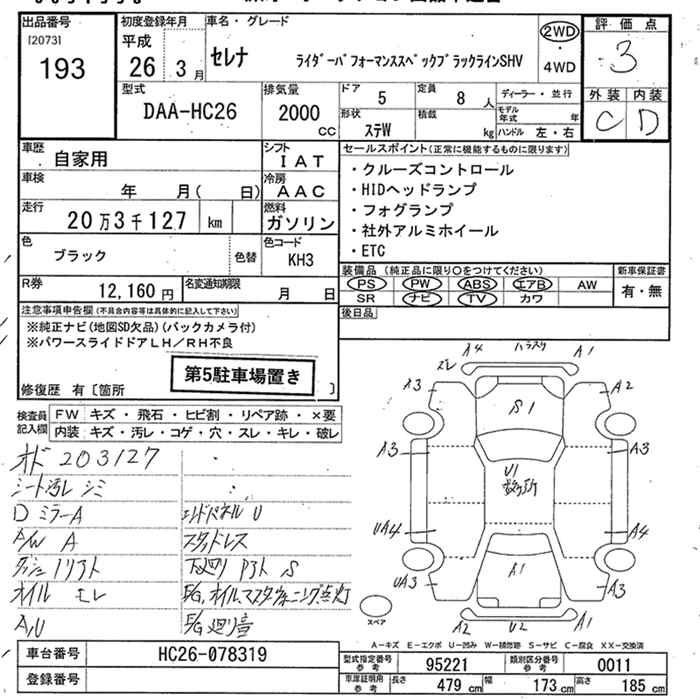 出品番号
[2073]
193
初度登録年月
平成
26 3月
車名・グレード
セレナ ライダーパフォーマンススペックブラックラインSHV
2WD
・
4WD
評価点
3
外装 内装
C D
型式
DAA-HC26
排気量
2000 CC
ドア 5
定員 8 人
形状 ステW
積載 kg
ディーラー・並行
モデル年式 年
ハンドル 左・右
車歴
自家用
シフト
IAT
車検
年 月( 日)
冷房
AAC
走行
20万3千127 km
燃料
ガソリン
色
ブラック
色替
色コード
KH3
R券
12,160円
名変通知期限
月 日
セールスポイント(正常に機能するものに限ります)
・クルーズコントロール
・HIDヘッドランプ
・フォグランプ
・社外アルミホイール
・ETC
装備品(純正品に限り○をつけてください)
PS PW ABS エアB AW
SR ナビ TV カワ
新車保証書
有・無
後日品
注意事項申告欄(不具合内容等は具体的に記入して下さい)
※純正ナビ(地図SD欠品)(バックカメラ付)
※パワースライドドアLH/RH不良
第5駐車場置き
修復歴 有〔箇所 〕
検査員記入欄
FW キズ・飛石・ヒビ割・リペア跡・×要
内装 キズ・汚レ・コゲ・穴・スレ・キレ・破レ
オド 203127
シート汚レ シミ
DミラーA
A/W A
オイル モレ
A/U
エンドパネル U
スタッドレス
下廻り S
E/G,オイル,マスターウォーニング点灯
E/G 廻り音
スレ A4 A1
A3 A2
S1
A3 A3
U1
数ヶ所
UA4 A4
UA3 A1 A3
A2 U2 A1
スペア
A-キズ E-エクボ U-凹み W-補修跡 S-サビ C-腐食 XX-交換済
車台番号 HC26-078319
登録番号
型式指定番号参考 95221
類別区分番号参考 0011
車庫証明用参考 長さ 479 cm 幅 173 cm 高さ 185 cm